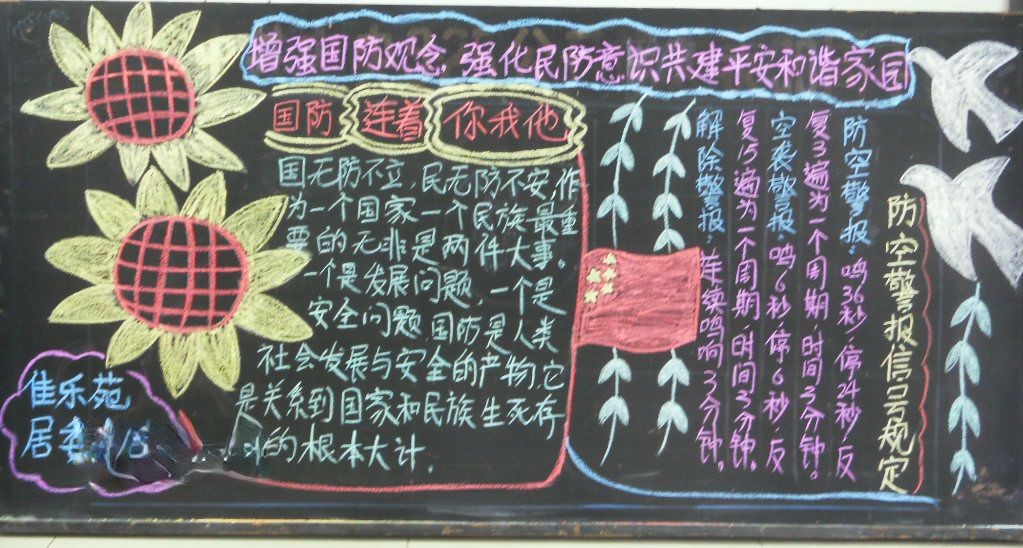 增强国防观念 强化民防意识共建平安和谐家园
国防 连着 你我他
国无防不立，民无防不安，作
为一个国家一个民族最重
要的无非是两件大事，
一个是发展问题，一个是
安全问题，国防是人类
社会发展与安全的产物，它
是关系到国家和民族生死存
的根本大计。
佳乐苑
居委
防空警报信号规定
防空警报：鸣36秒，停24秒，反
复3遍为一个周期，时间3分钟。
空袭警报：鸣6秒，停6秒，反
复15遍为一个周期，时间3分钟。
解除警报：连续鸣响3分钟。